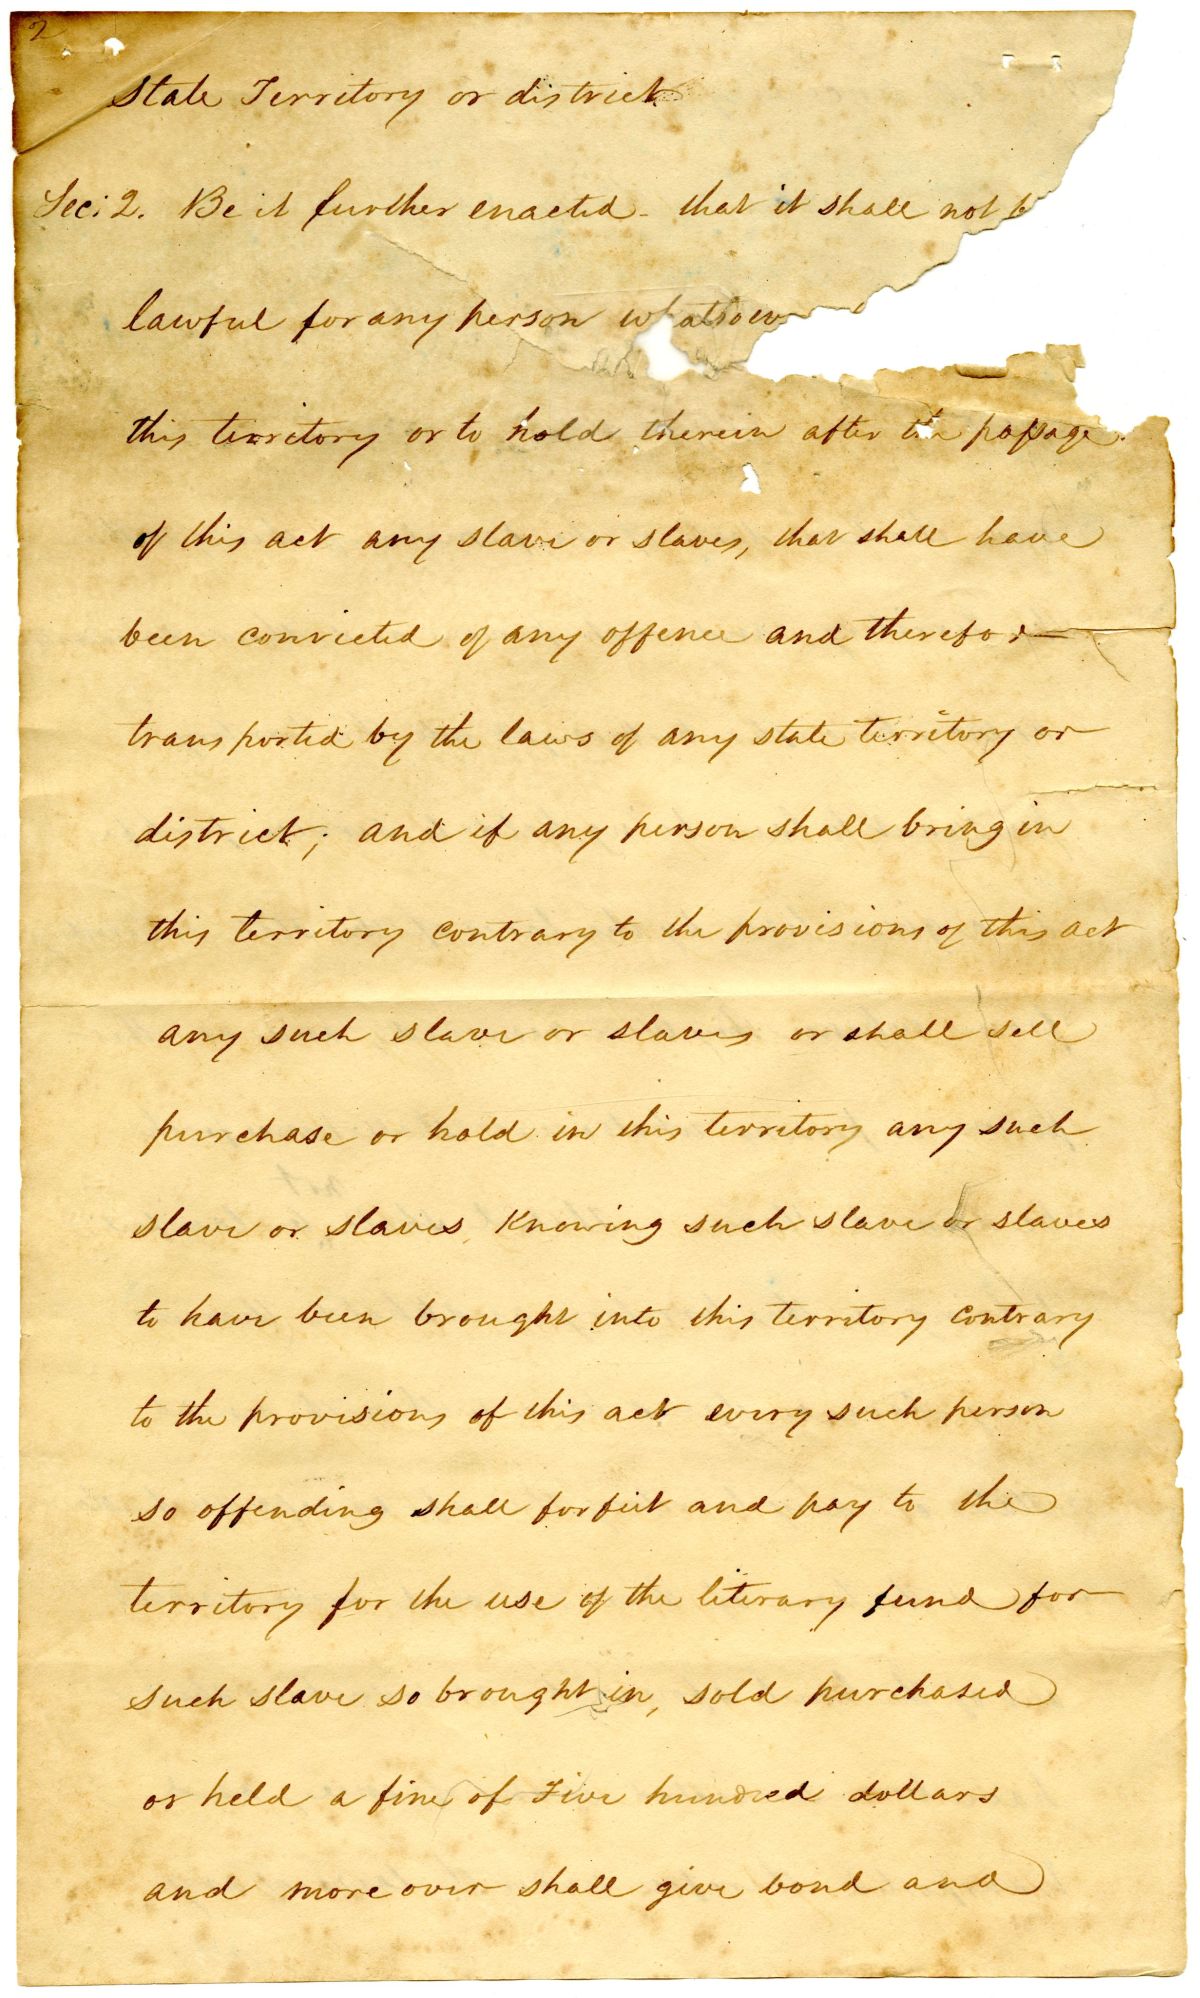 2
State Territory or district
Sec: 2. Be it further enacted - that it shall not b
lawful for any person whatsoev
this territory or to hold therein after the passage
of this act any slave or slaves, that shall have
been convicted of any offence and therefor
transported by the laws of any state territory or
district; and if any person shall bring in
this territory contrary to the provisions of this act
any such slave or slaves or shall sell
purchase or hold in this territory any such
slave or slaves, Knowing such slave or slaves
to have been brought into this territory contrary
to the provisions of this act every such person
so offending shall forfeit and pay to the
territory for the use of the literary fund for
such slave so brought in, sold purchased
or held a fine of Five hundred dollars
and more over shall give bond and